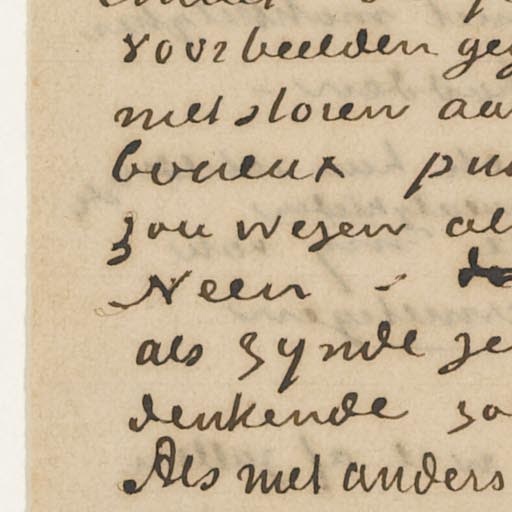 voorbeelden ge
met storen aa
boveux pu
zou wezen al
Neen -
als zynde ze
denkende zo
Als met anders